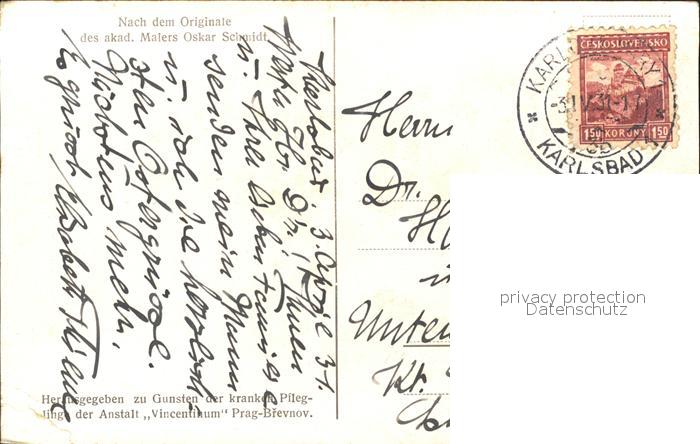 Nach dem Originale
des akad. Malers Oskar Schmidt.
Karlsbad, 3. April 31.
Ihnen
u. Ihrer lieben Familie
senden mein Mann
u. ich die herzlich-
sten Ostergrüsse.
Nächstens mehr.
Es grüsst
Herausgegeben zu Gunsten der kranken Pfleg-
linge der Anstalt „Vincentinum" Prag-Břevnov.
ČESKOSLOVENSKO
1.50 KORUNY 1.50
KARLSBAD
Herrn
Dr.
Unter
Kt.
privacy protection
Datenschutz